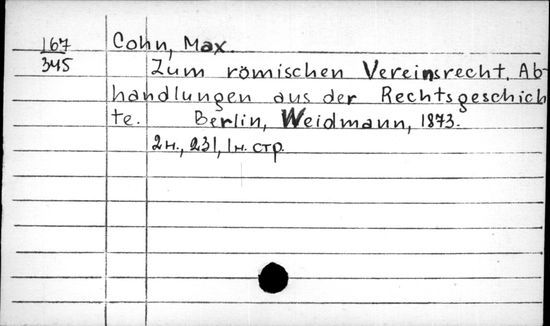 167 Cohn, Max.
345 Zum römischen Vereinsrecht. Ab-
handlungen aus der Rechtsgeschich
te. Berlin, Weidmann, 1873.
2н., 231, 1н. стр.